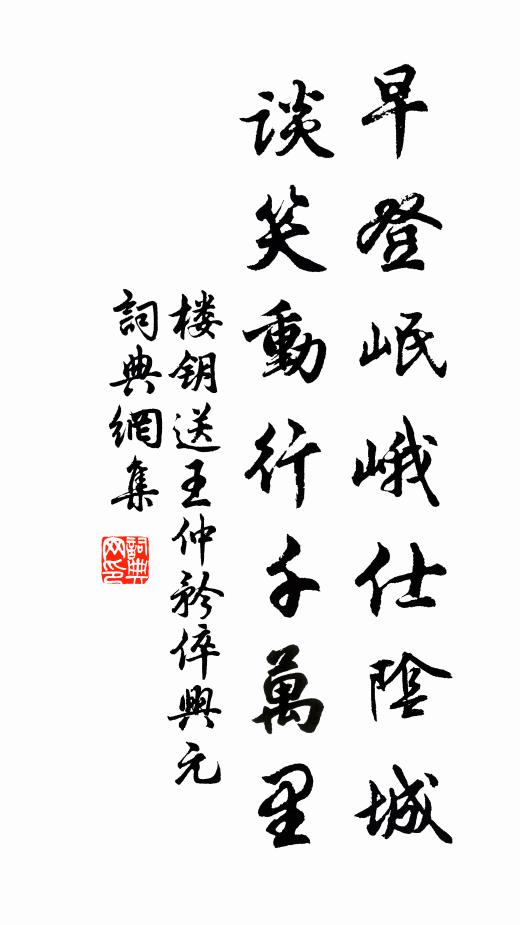 早登岷峨仕陰城
談笑動行千萬里
楼鑰送王仲矜倅興元
詞典網集
詞典網印